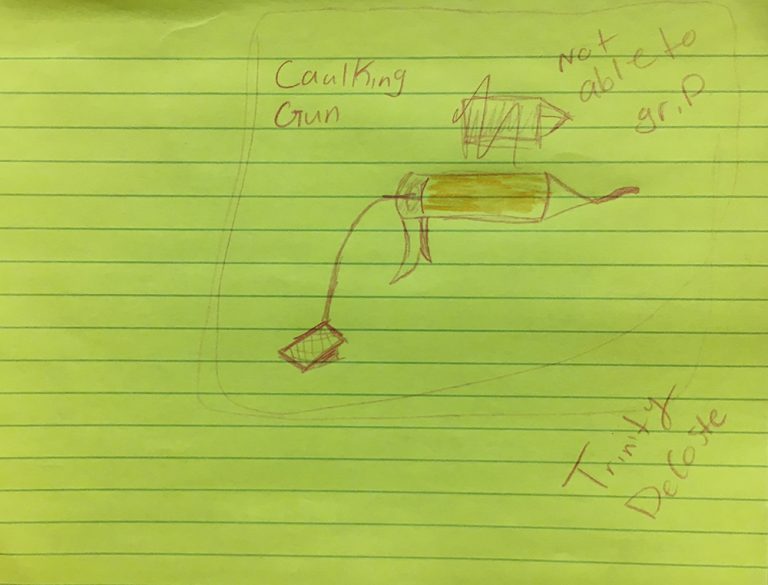 Caulking
Gun
Not
able to
grip
Trinity
DeCoste